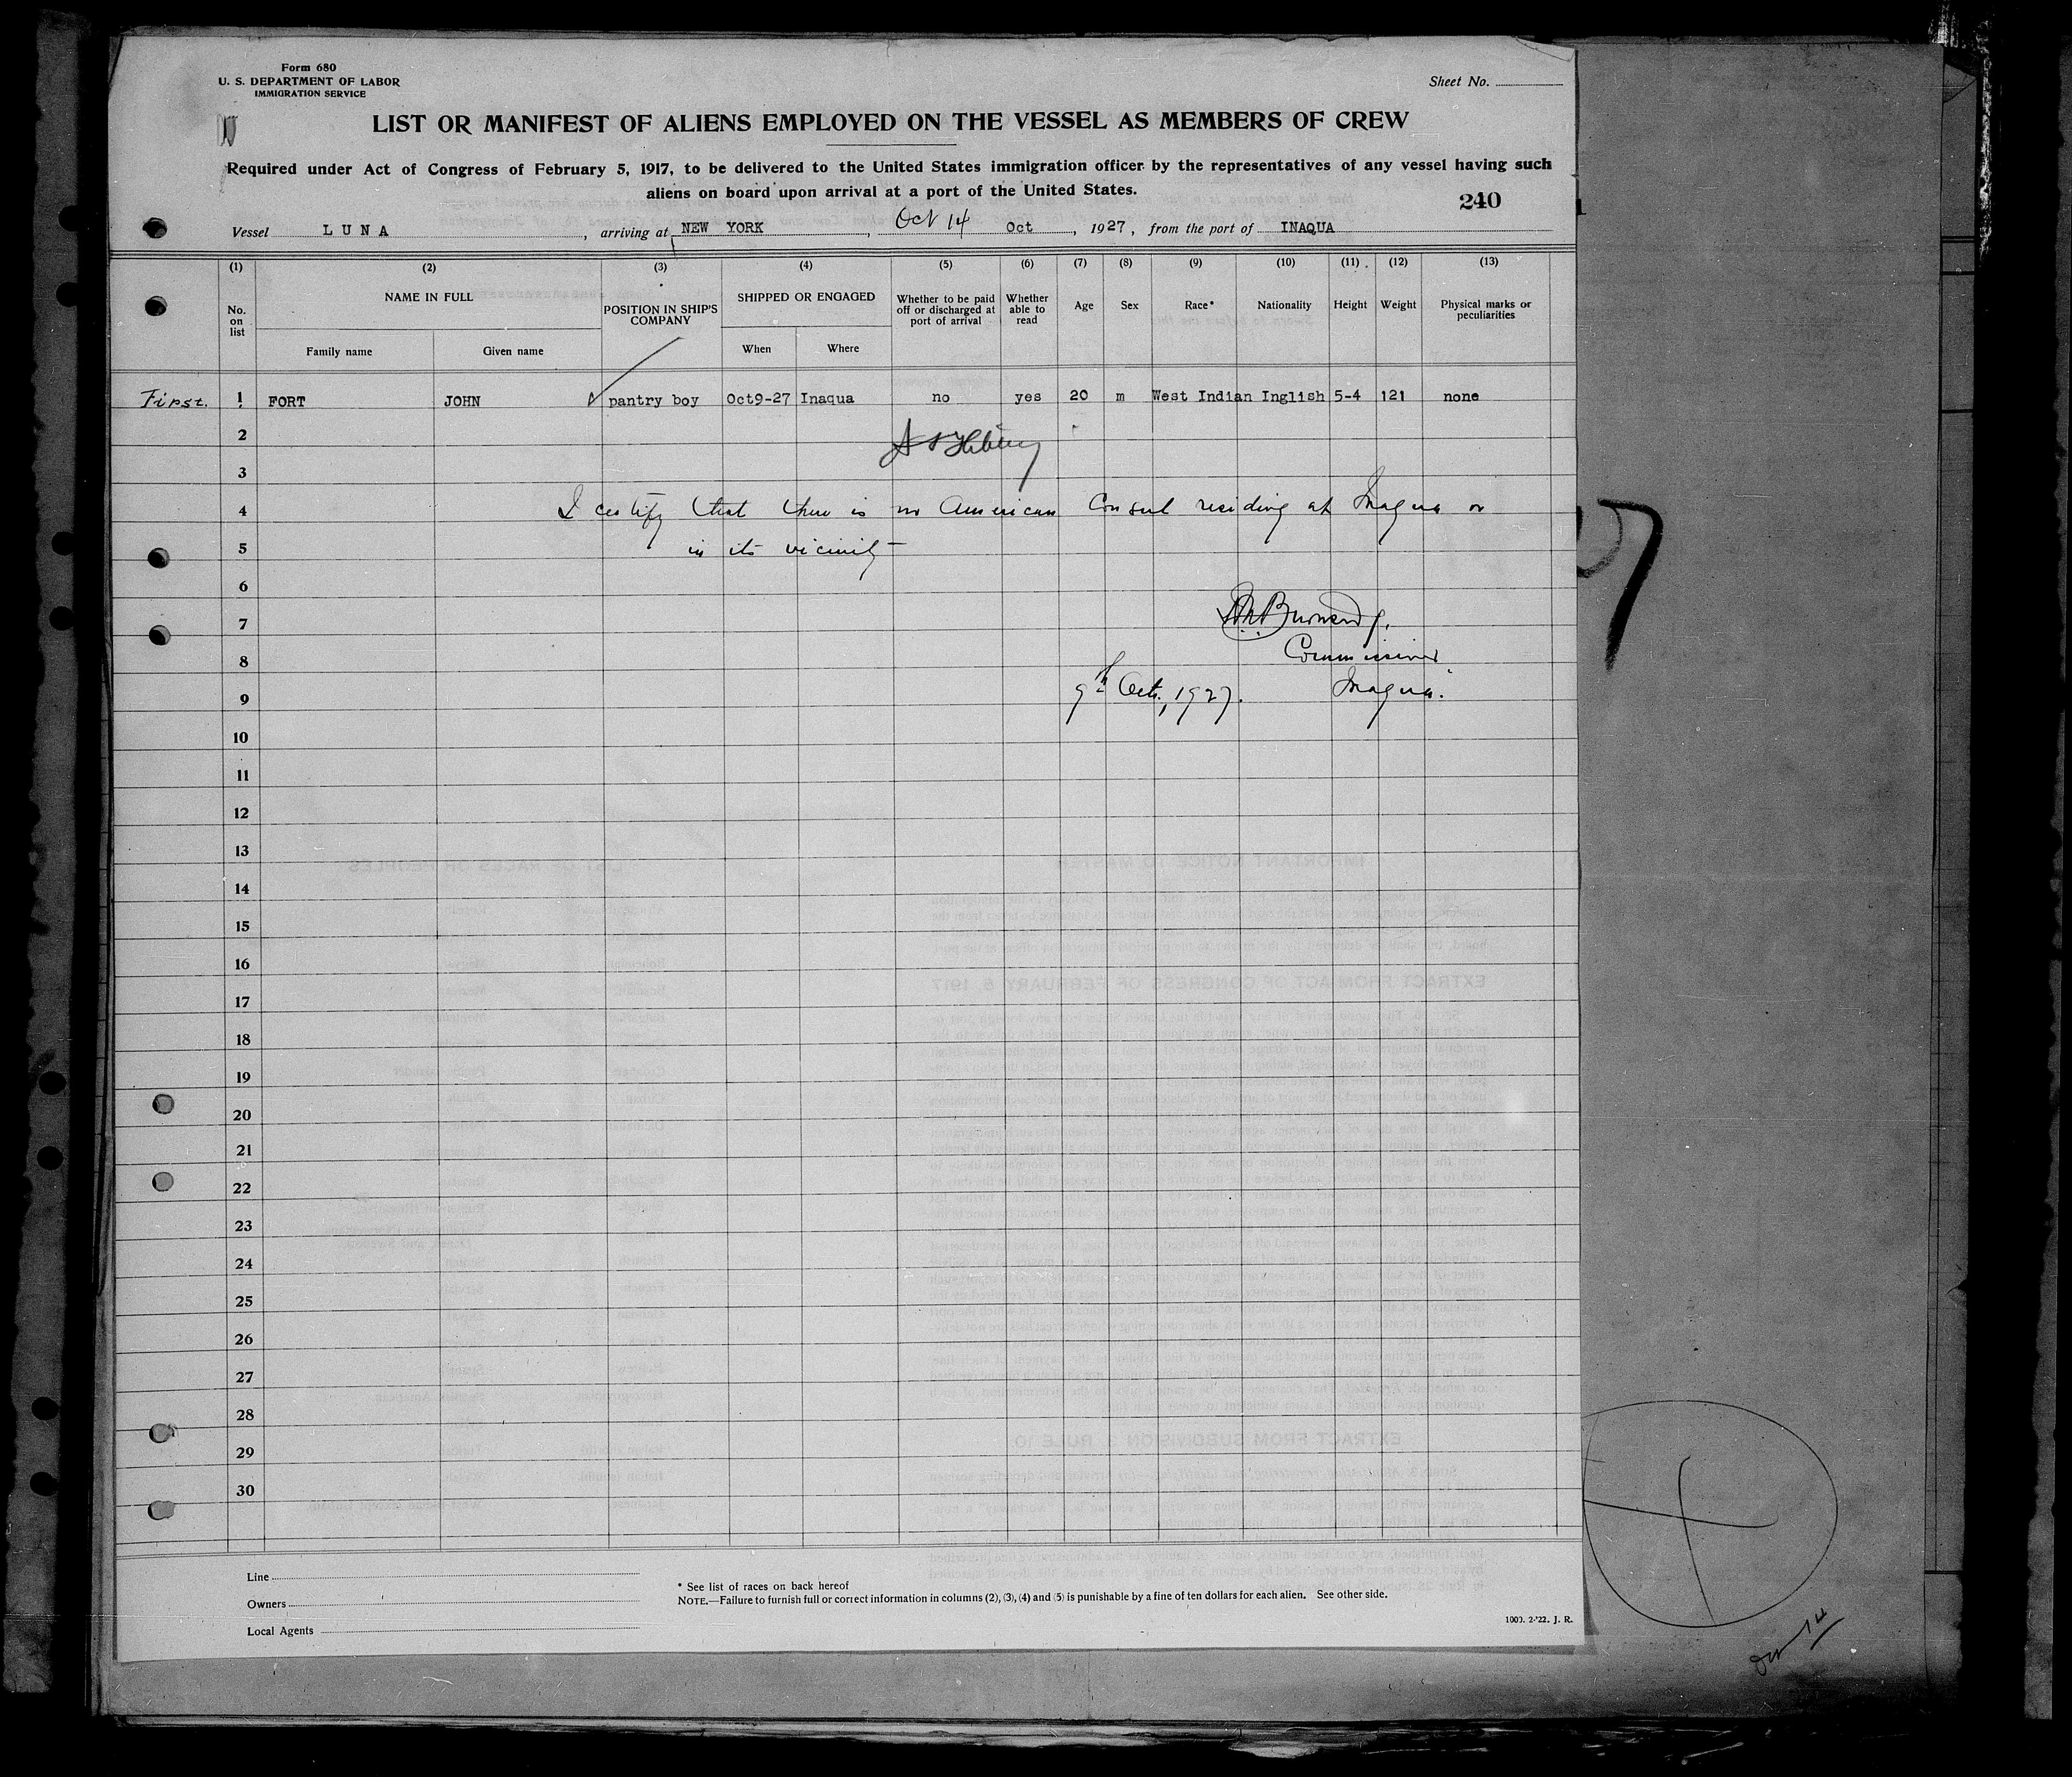 Form 680
U. S. DEPARTMENT OF LABOR
IMMIGRATION SERVICE
Sheet No.
LIST OR MANIFEST OF ALIENS EMPLOYED ON THE VESSEL AS MEMBERS OF CREW
Required under Act of Congress of February 5, 1917, to be delivered to the United States immigration officer by the representatives of any vessel having such
aliens on board upon arrival at a port of the United States.
240
Vessel LUNA, arriving at NEW YORK, Oct 14 Oct, 1927, from the port of INAQUA
(1) (2) (3) (4) (5) (6) (7) (8) (9) (10) (11) (12) (13)
No. on list
NAME IN FULL
Family name
Given name
POSITION IN SHIP'S COMPANY
SHIPPED OR ENGAGED
When
Where
Whether to be paid off or discharged at port of arrival
Whether able to read
Age
Sex
Race*
Nationality
Height
Weight
Physical marks or peculiarities
First. 1 FORT JOHN pantry boy Oct9-27 Inaqua no yes 20 m West Indian Inglish 5-4 121 none
2
3
4 I certify that there is no American Consul residing at Inagua or
5 in its vicinity
6
7
8 Commissioner
9 9th Oct., 1927. Inagua.
10
11
12
13
14
15
16
17
18
19
20
21
22
23
24
25
26
27
28
29
30
Line
Owners
Local Agents
* See list of races on back hereof
NOTE.—Failure to furnish full or correct information in columns (2), (3), (4) and (5) is punishable by a fine of ten dollars for each alien. See other side.
1000. 2-'22. J. R.